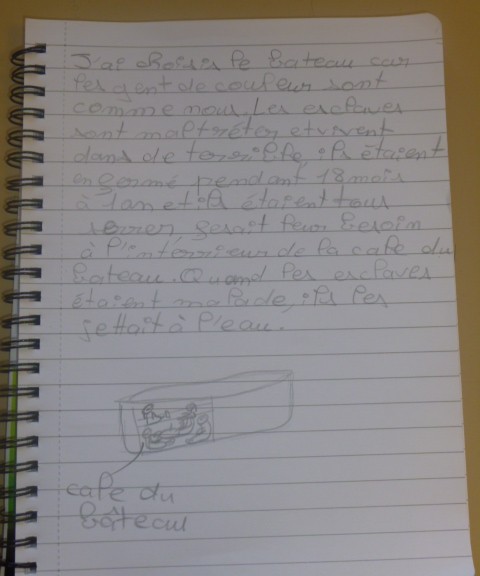 J'ai choisis le bateau car
les gent de couleur sont
comme nous. Les esclaves
sont maltréter et vivent
dans de terrible, ils étaient
enfermé pendant 18 mois
à 1 an et ils étaient tous
serrer, fesait leur besoin
à l'intérrieur de la cale du
bateau. Quand les esclaves
étaient malade, ils les
jettait à l'eau.
cale du
bâteau